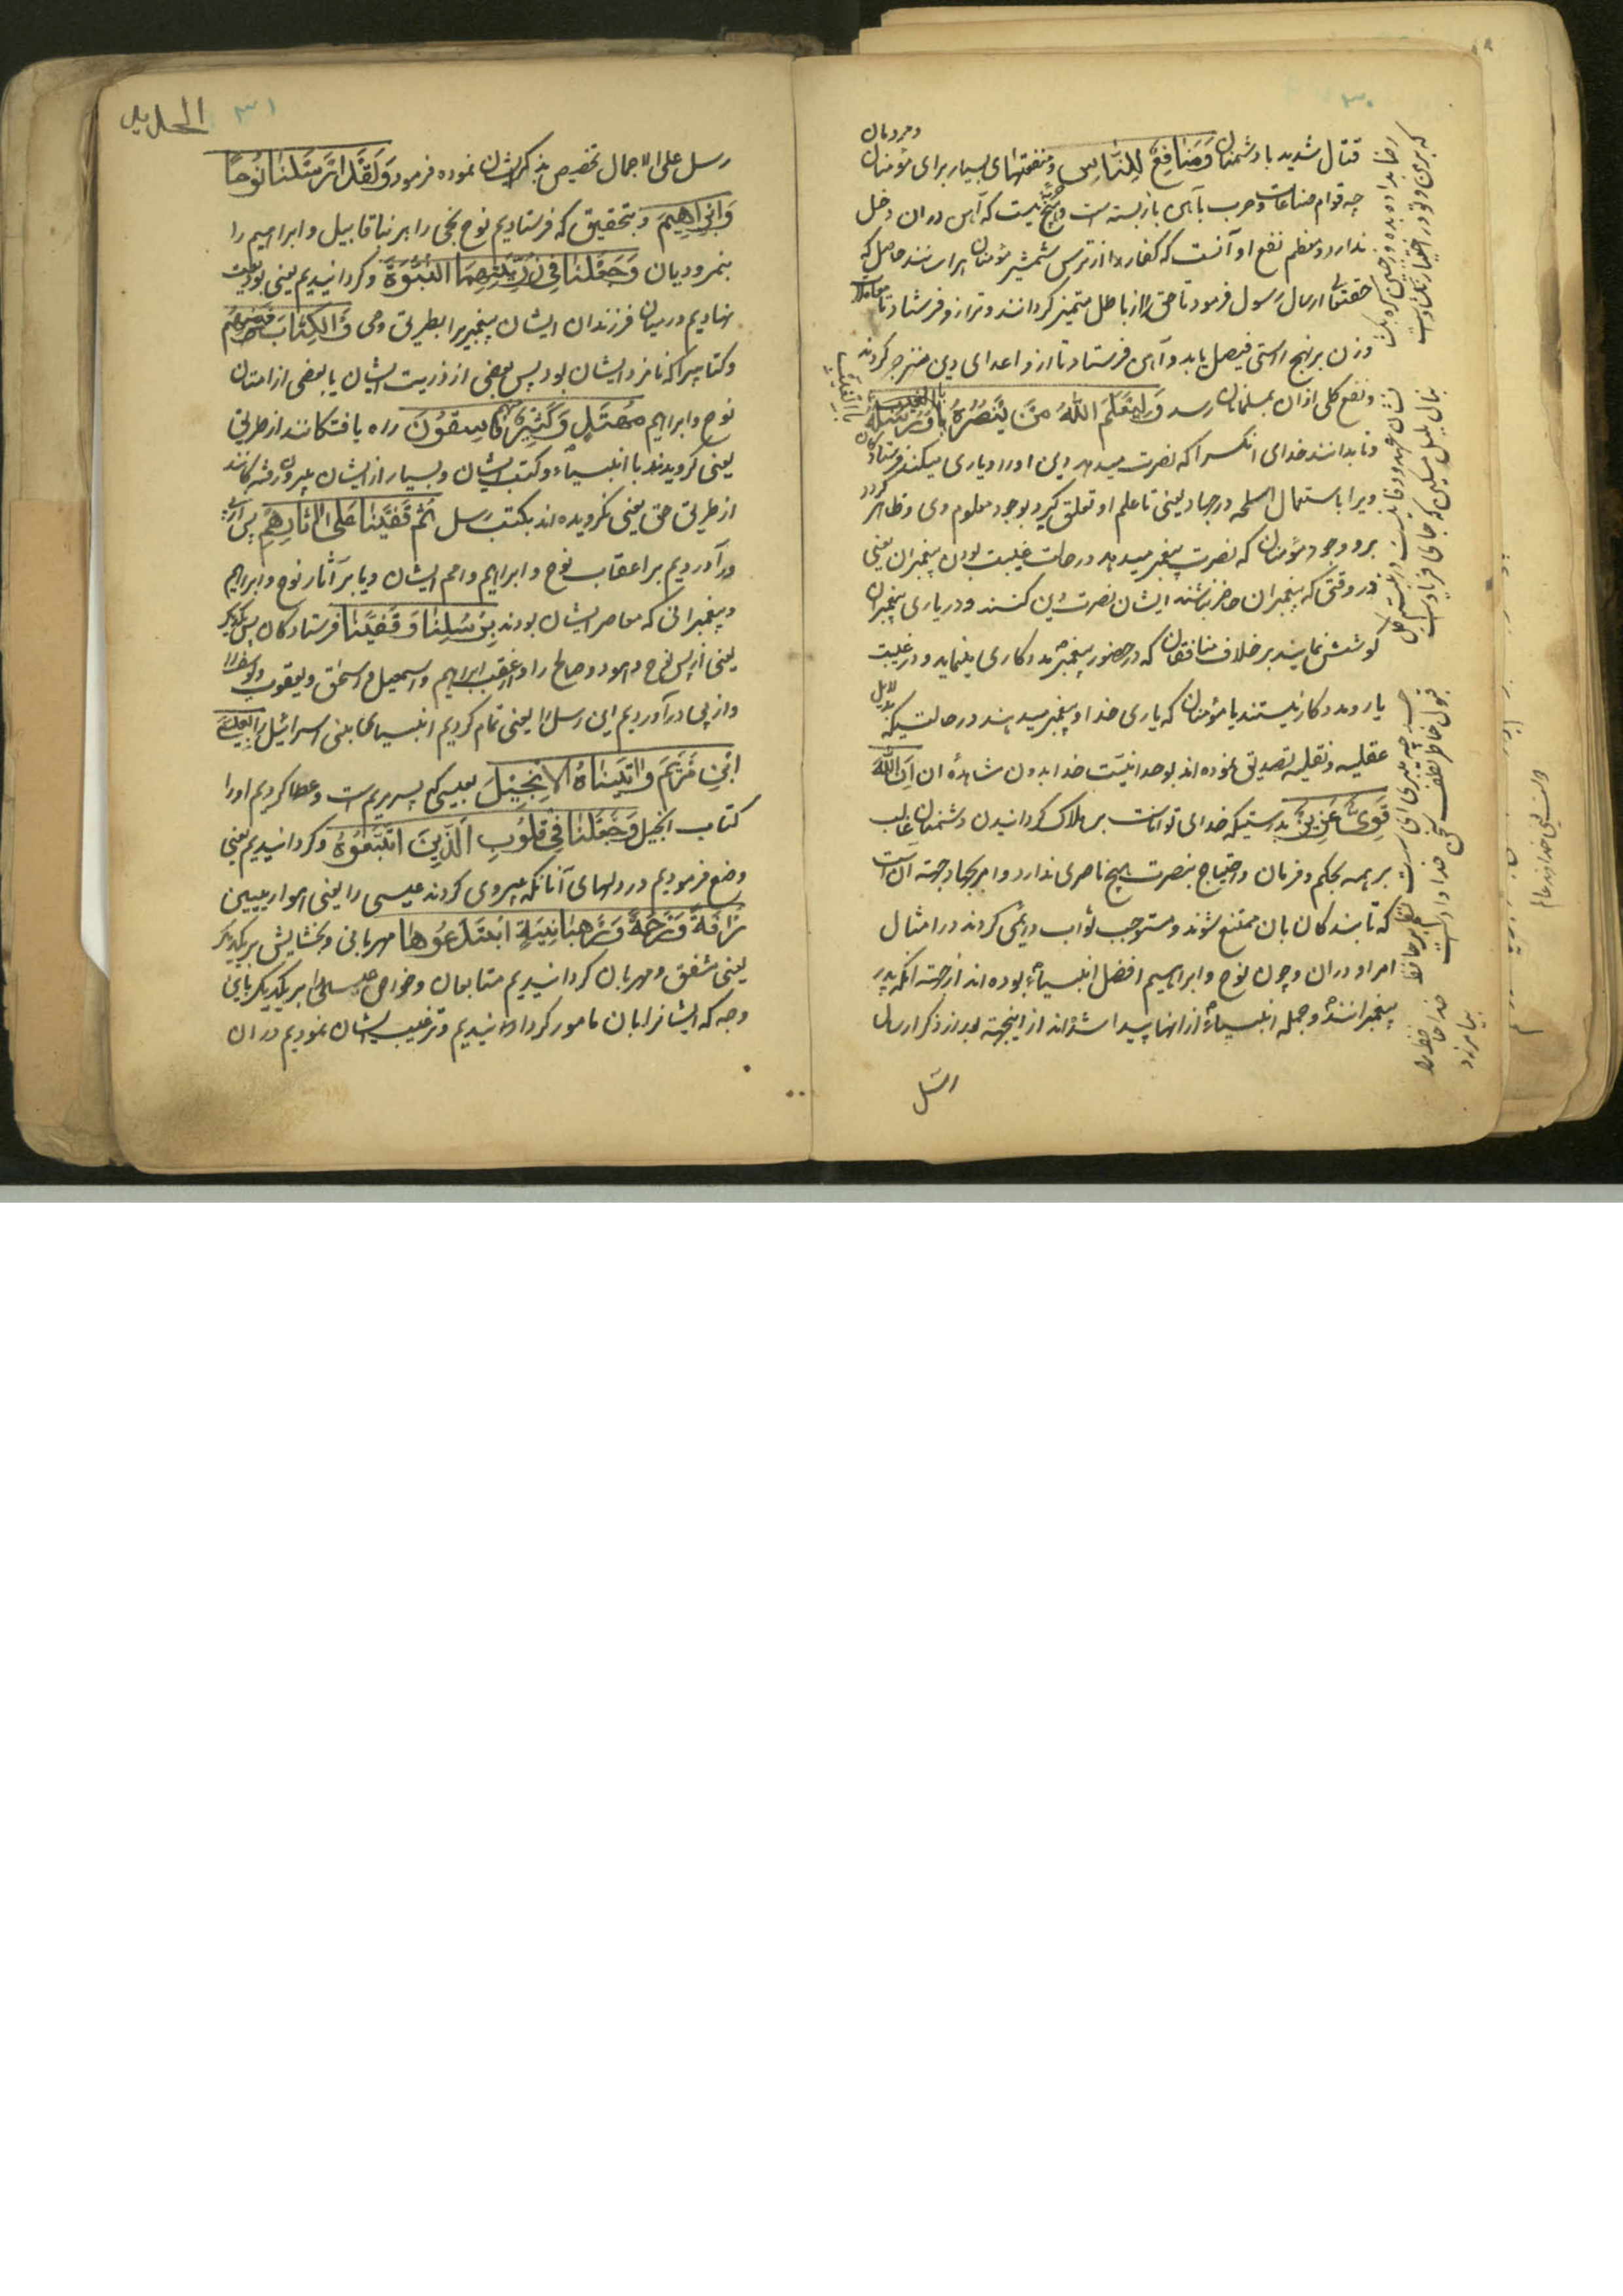 ۳۰
و مردمان
قتال شدید با دشمنان وَمَنَافِعُ لِلنَّاسِ و منفعتهای بسیار برای مؤمنان
چه قوام صناعات و حرب بآهن بازبسته است و هیچ نیست که آهن در ان دخل
ندارد و معظم نفع او آنست که کفار را از ترس شمشیر مؤمنان هراسانند حاصل که
حقتعالی ارسال رسول فرمود تا حق را از باطل متمیز کردانند و ترازو فرستاد تا معاملات
وزن بر نهج راستی فیصل یابد و آهن فرستاد تا ازو اعدای دین منزجر کردند
و نفع کلی ازان بمسلمانان رسد وَلِیَعْلَمَ اللهُ مَنْ یَنْصُرُهُ وَرُسُلَهُ بِالْغَیْبِ
و تا بداند خدای انکس را که نصرت میدهد دین او را و یاری میکند فرستادکان
ویرا باستعمال اسلحه در جهاد یعنی تا علم او تعلق کیرد بوجود معلوم وی و ظاهر کردد
برو وجود مؤمنان که نصرت پیغمبر میدهد در حالت غیبت بودن پیغمبران یعنی
در وقتی که پیغمبران حاضر نباشند ایشان نصرت دین کنند و در یاری پیغمبران
کوشش نمایند بر خلاف منافقان که در حضور پیغمبر مددکاری مینماید و در غیبت
یار و مددکار نیستند یا مؤمنان که یاری خدا و پیغمبر میدهند در حالتیکه بدلایل
عقلیه و نقلیه تصدیق نموده اند بوحدانیت خدا بدون مشاهدهٔ ان اِنَّ اللهَ
قَوِیٌّ عَزِیزٌ بدرستیکه خدای تواناست بر هلاک کردانیدن دشمنان غالب
بر همه بحکم و فرمان و احتیاج بنصرت هیچ ناصری ندارد و امر بجهاد جهة ان است
که تا بندکان بان ممتنع شوند و مستوجب ثواب دایمی کردند در امتثال
امر او دران و چون نوح و ابراهیم افضل انبیاء بوده اند از جهة انکه پدر
پیغمبرانند و جمله انبیاء از انها پیدا شده اند از اینجهة بعد از ذکر ارسال
رسل
رضا بداده بده وز جبین کره بکشا
که بر من و تو در اختیار نکشادست
نشان عهد و وفا نیست در تبسم کل
بنال بلبل مسکین که جای فریادست
حسد چه میبری ای سست نظم بر حافظ
قبول خاطر و لطف سخن خدادادست
خدا حافظ را
بیامرزد
الحدید
۳۱
رسل علی الاجمال تخصیص بذکر ایشان نموده فرمود وَلَقَدْ اَرْسَلْنَا نُوحًا
وَاِبْرَاهِیمَ و بتحقیق که فرستادیم نوح نجی را بر بنا قابیل و ابراهیم را
بنمرودیان وَجَعَلْنَا فِی ذُرِّیَّتِهِمَا النُّبُوَّةَ و کردانیدیم یعنی بودیعت
نهادیم در میان فرزندان ایشان پیغمبری را بطریق وحی وَالْکِتَابَ فَمِنْهُمْ
و کتابی را که نامزد ایشان بود پس بعضی از ذریت ایشان یا بعضی از امتان
نوح و ابراهیم مُهْتَدٍ وَکَثِیرٌ مِنْهُمْ فَاسِقُونَ راه یافتکانند از طریق
یعنی کرویدند با انبیاء و کتب ایشان و بسیار از ایشان بیرون رفتکانند
از طریق حق یعنی نکرویده اند بکتب و رسل ثُمَّ قَفَّیْنَا عَلَی اٰثَارِهِمْ پس از پی
درآوردیم بر اعقاب نوح و ابراهیم و امم ایشان و یا بر آثار نوح و ابراهیم
و پیغمبرانی که معاصر ایشان بودند بِرُسُلِنَا وَقَفَّیْنَا فرستادکان پس یکدیکر
یعنی از پس نوح هود و صالح را و از عقب ابراهیم و اسمعیل و اسحق و یعقوب و یوسف را
و از پی درآوردیم این رسل را یعنی تمام کردیم انبیای بنی اسرائیل را بِعِیسَی
ابْنِ مَرْیَمَ وَاٰتَیْنَاهُ الْاِنْجِیلَ بعیسی که پسر مریم است و عطا کردیم او را
کتاب انجیل وَجَعَلْنَا فِی قُلُوبِ الَّذِینَ اتَّبَعُوهُ و کردانیدیم یعنی
وضع فرمودیم در دلهای آنانکه پیروی کردند عیسی را یعنی حواریین
رَاْفَةً وَرَحْمَةً وَرَهْبَانِیَّةً ابْتَدَعُوهَا مهربانی و بخشایش بر یکدیکر
یعنی مشفق و مهربان کردانیدیم متابعان و خواص عیسی را بر یکدیکر باین
وجه که ایشانرا بان مامور کردانیدیم و ترغیب ایشان نمودیم در ان